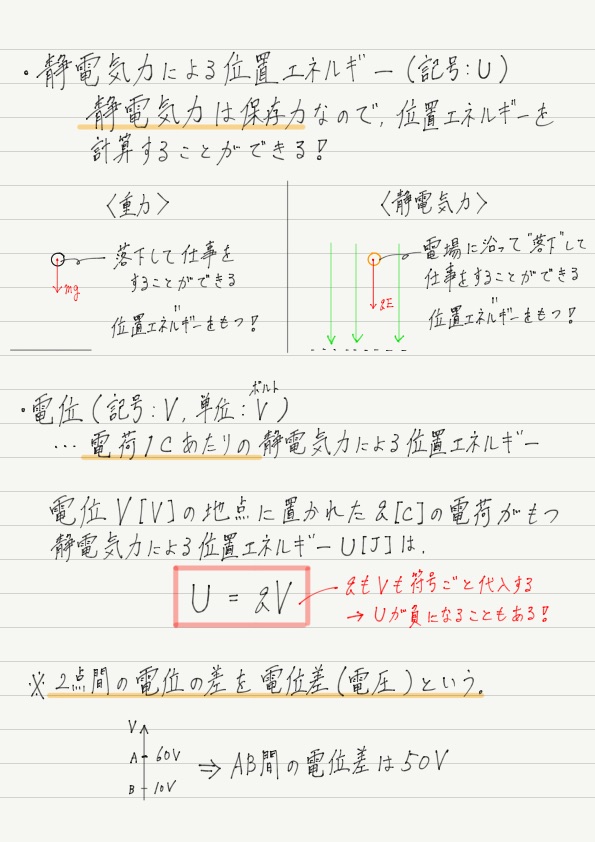 ・静電気力による位置エネルギー(記号:U)
静電気力は保存力なので,位置エネルギーを
計算することができる!
〈重力〉
落下して仕事を
することができる
mg
〃
位置エネルギーをもつ!
〈静電気力〉
電場に沿って"落下"して
仕事をすることができる
qE
〃
位置エネルギーをもつ!
ボルト
・電位(記号:V,単位:V)
…電荷1Cあたりの静電気力による位置エネルギー
電位V[V]の地点に置かれたq[C]の電荷がもつ
静電気力による位置エネルギーU[J]は,
U = qV
qもVも符号ごと代入する
→Uが負になることもある!
※2点間の電位の差を電位差(電圧)という。
V
A 60V
B 10V
⇒ AB間の電位差は50V